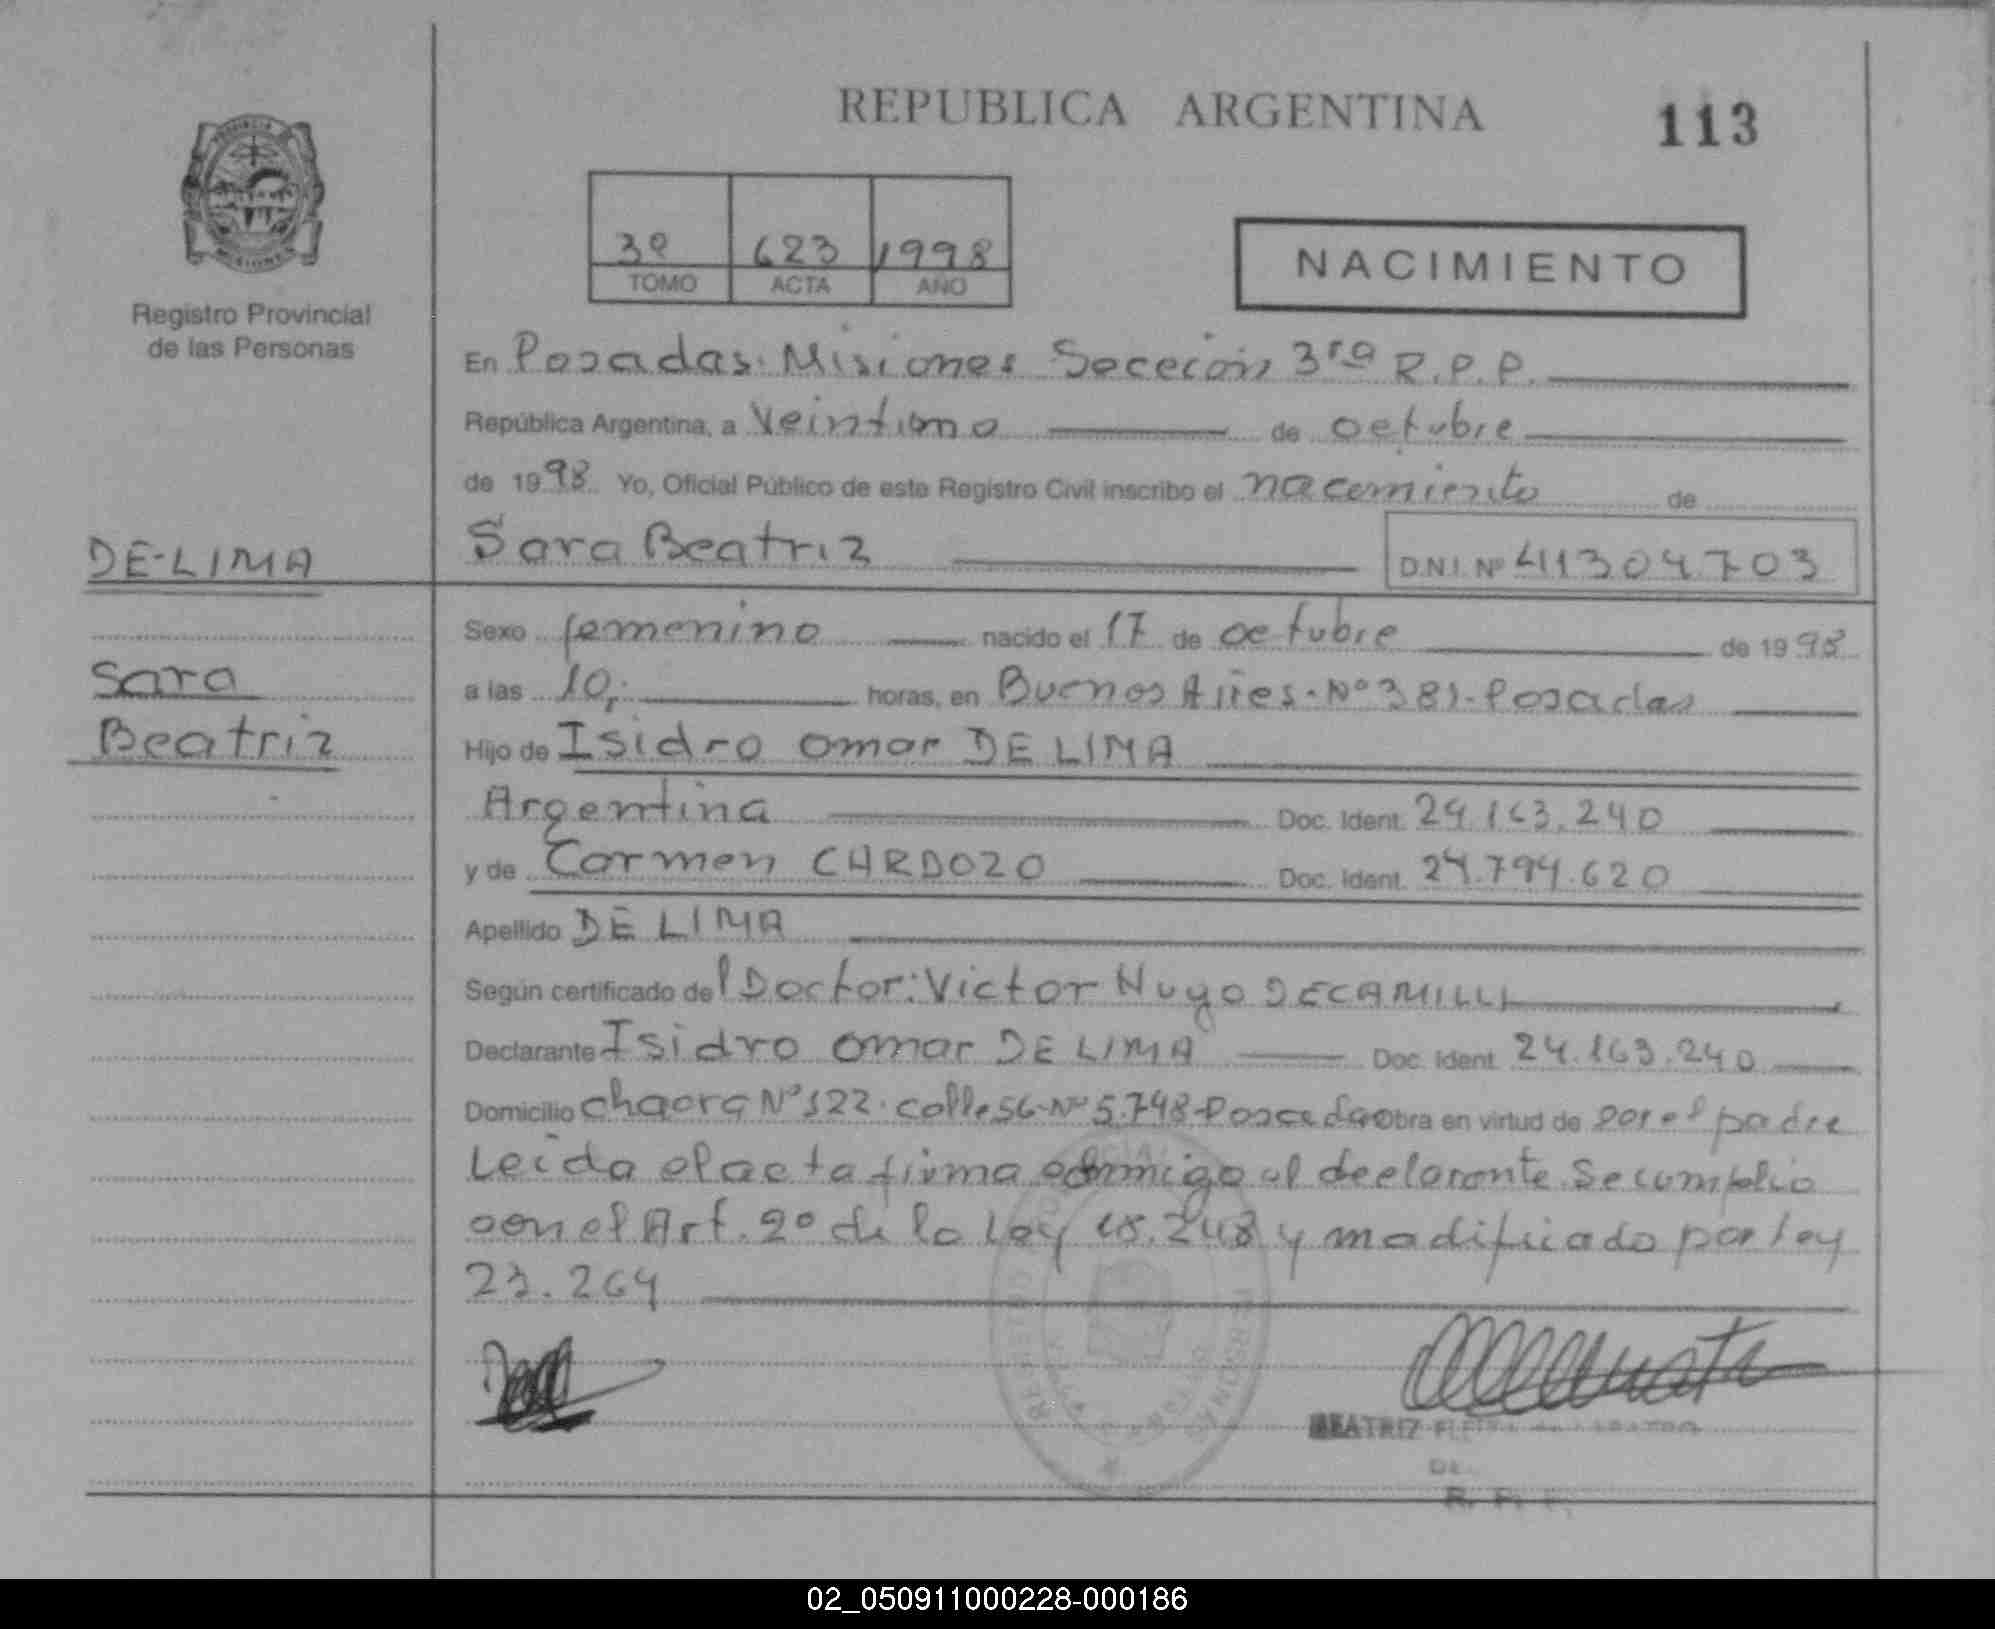 REPUBLICA ARGENTINA
113
3º 623 1998
TOMO ACTA AÑO
NACIMIENTO
Registro Provincial
de las Personas
En Posadas. Misiones Sececion 3ra R.P.P.
República Argentina, a Veintiuno de octubre
de 1998 Yo, Oficial Público de este Registro Civil inscribo el nacimiento de
DE-LIMA
Sara Beatriz
D.N.I. Nº 41304703
Sexo femenino nacido el 17 de octubre de 1998
Sara
a las 10,- horas, en Buenos Aires-Nº381-Posadas
Beatriz
Hijo de Isidro Omar DE LIMA
Argentina Doc. Ident. 24.163.240
y de Carmen CARDOZO Doc. Ident. 24.794.620
Apellido DE LIMA
Según certificado del Doctor: Victor Hugo DECAMILLI
Declarante Isidro Omar DE LIMA Doc. Ident. 24.163.240
Domicilio chacra Nº122. calle 56-Nº 5.748-Posadas Obra en virtud de Ser el padre
Leida el acta firma conmigo el declarante Se cumplio
con el Art. 2º de la Ley 18.248 y modificado por ley
23.264
BEATRIZ
R. P. P.
02_050911000228-000186